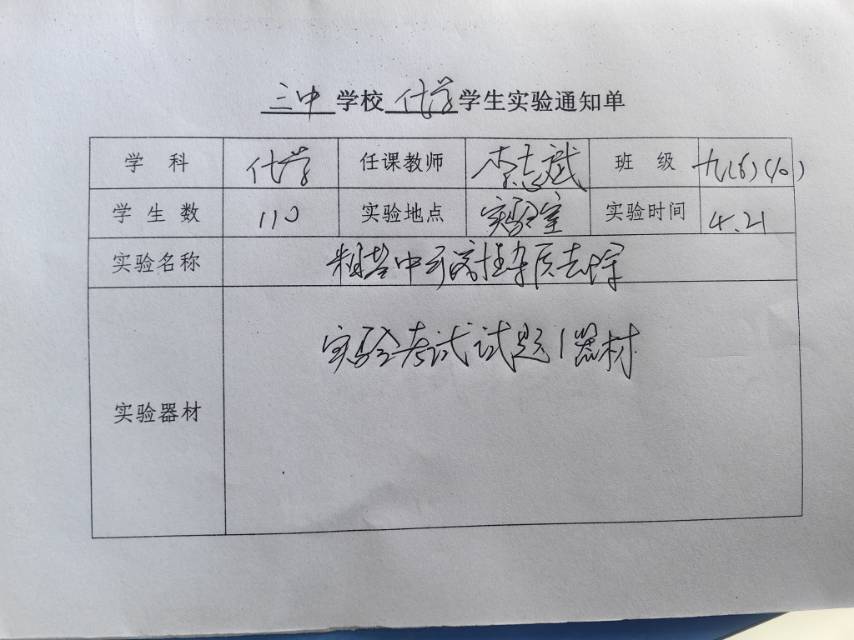 三中学校化学学生实验通知单
学科 化学 任课教师 李志斌 班级 九(6)(10)
学生数 110 实验地点 实验室 实验时间 4.21
实验名称 粗盐中可溶性杂质去除
实验考试试题1器材
实验器材